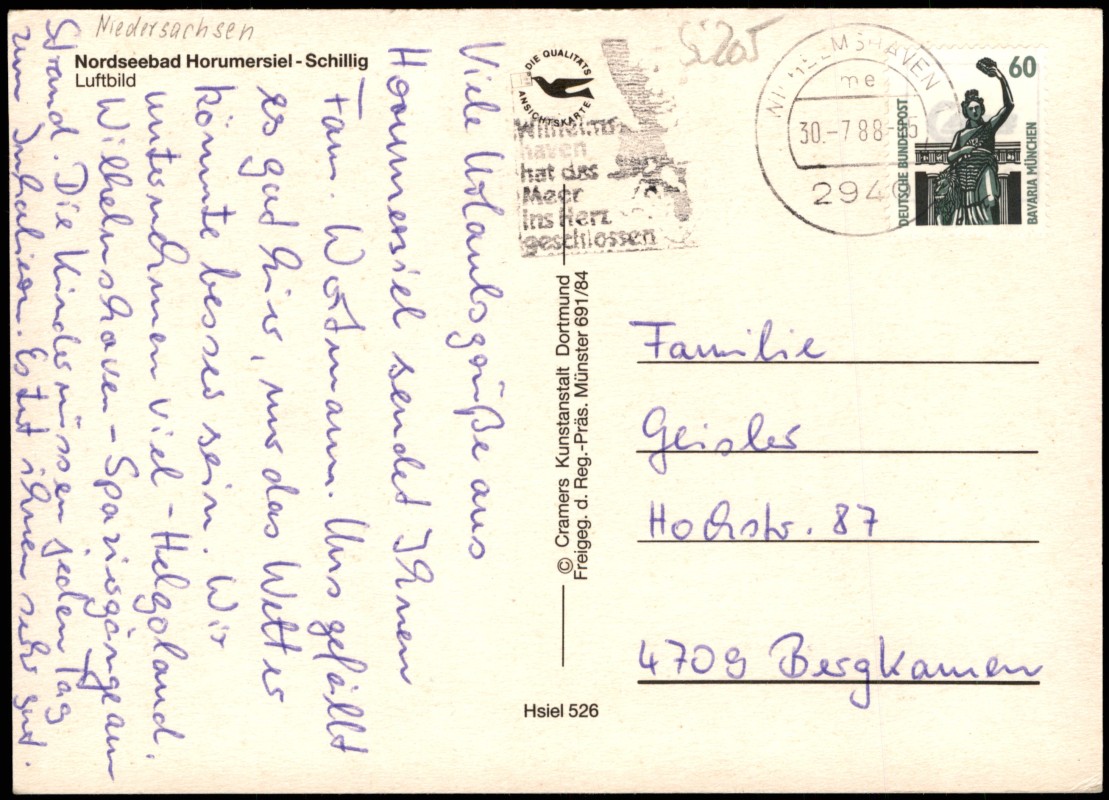 Niedersachsen
Nordseebad Horumersiel - Schillig
Luftbild
Viele Urlaubsgrüße aus
Horumersiel sendet Ihnen
Fam. Wortmann. Uns gefällt
es gut hier, nur das Wetter
könnte besser sein. Wir
unternehmen viel - Helgoland.
Wilhelmshaven - Spaziergänge am
Strand. Die Kinder müssen jeden Tag
zum Inhalieren. Es tut ihnen sehr gut.
DIE QUALITÄTS
ANSICHTSKARTE
Wilhelms
haven
hat das
Meer
ins Herz
geschlossen
Si205
WILHELMSHAVEN
me
30.-7.88-
2940
60
DEUTSCHE BUNDESPOST
BAVARIA MÜNCHEN
© Cramers Kunstanstalt Dortmund
Freigeg. d. Reg.-Präs. Münster 691/84
Familie
Geisler
Hochstr. 87
4709 Bergkamen
Hsiel 526